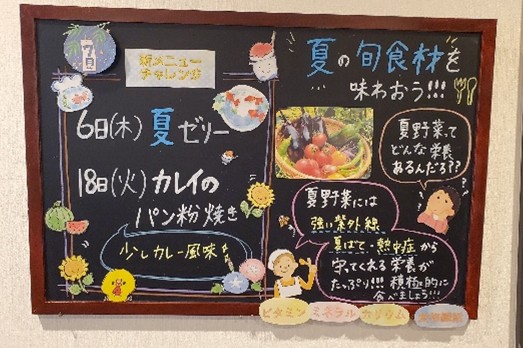 7月
新メニュー
チャレンジ
6日(木) 夏ゼリー
18日(火) カレイの
パン粉焼き
少しカレー風味!
夏の旬食材を
味わおう!!!
夏野菜って
どんな栄養
あるんだろ??
夏野菜には
強い紫外線
夏ばて・熱中症から
守ってくれる栄養が
たっぷり!!! 積極的に
食べましょう!!!
ビタミン ミネラル カリウム